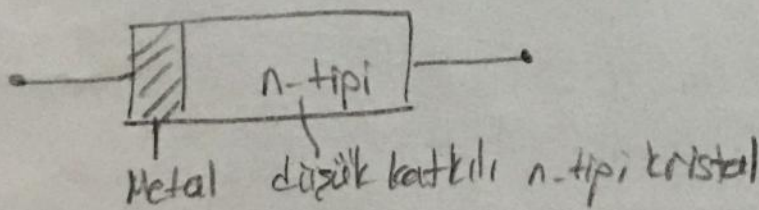 n-tipi
Metal düşük katkılı n-tipi kristal